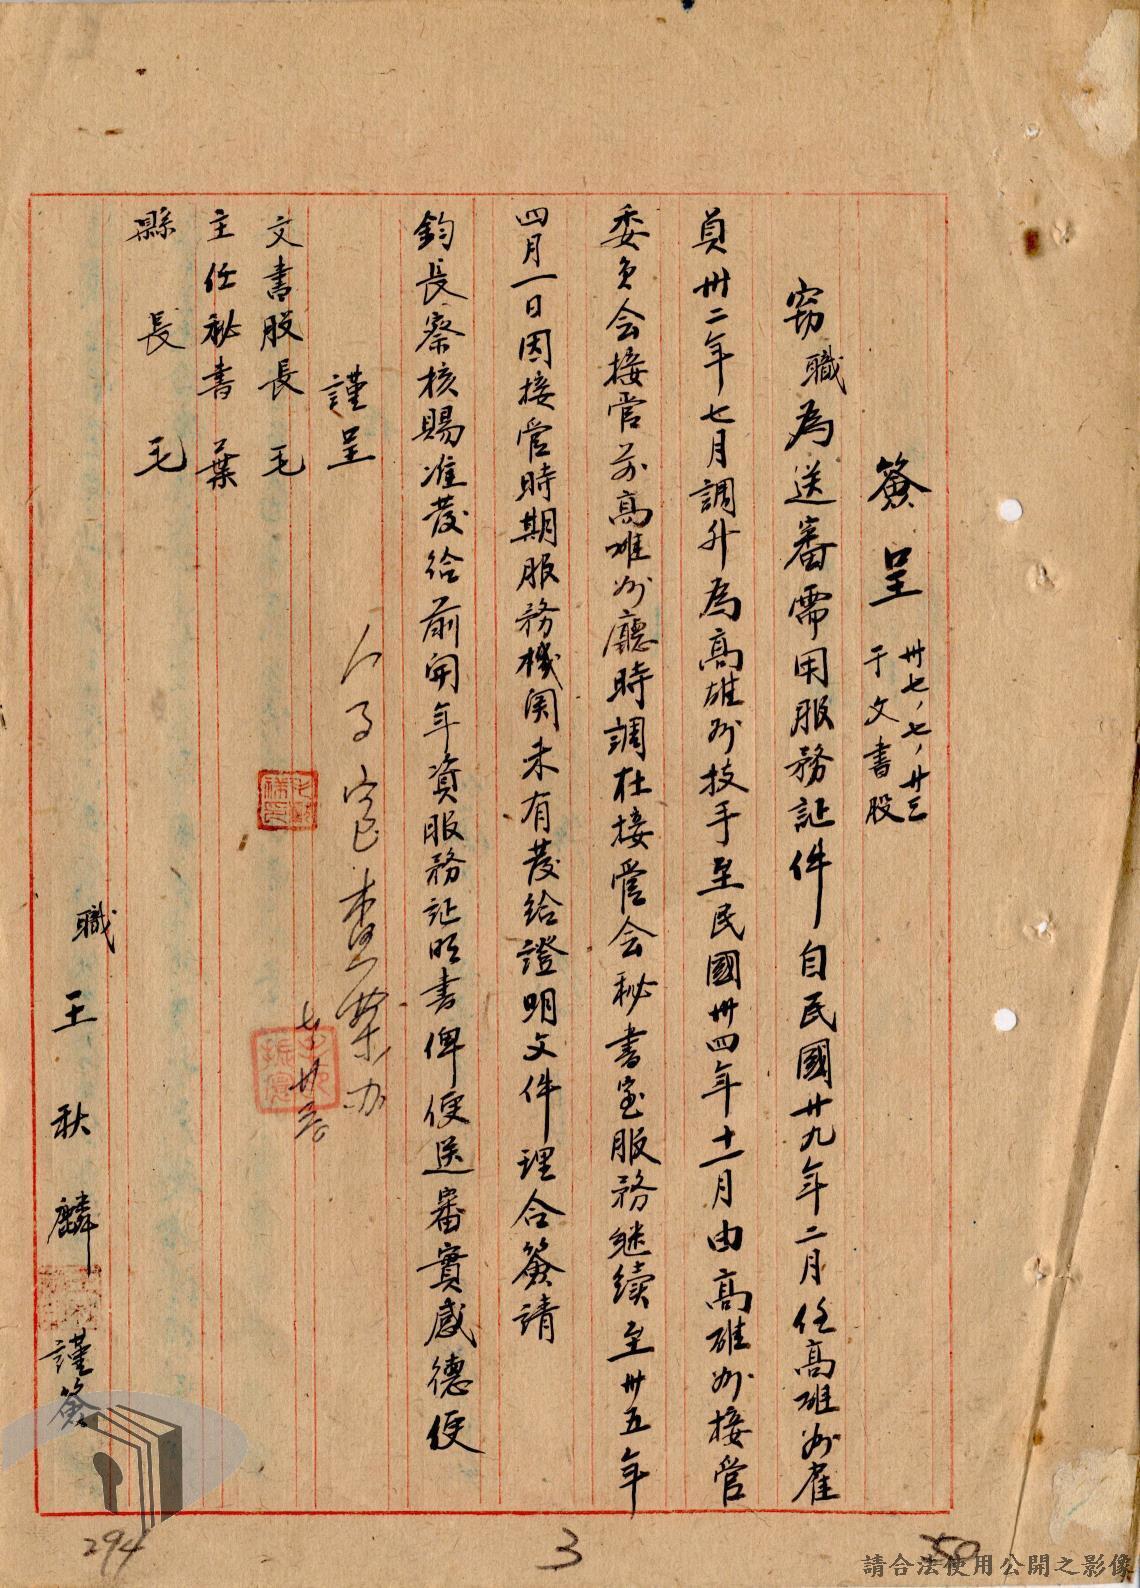 簽呈
卅七,七,廿三
于文書股
窃職為送審需用服務証件自民國廿九年二月任高雄州雇
員卅二年七月調升為高雄州技手至民國卅四年十一月由高雄州接管
委員会接管前高雄州廳時調在接管会秘書室服務継續至卅五年
四月一日因接管時期服務機関未有發給證明文件理合簽請
鈞長察核賜准發給前開年資服務証明書俾便送審實感德便
謹呈
文書股長 毛
主任秘書 葉
縣長 毛
職 王秋麟 謹簽
294
3
50
請合法使用公開之影像